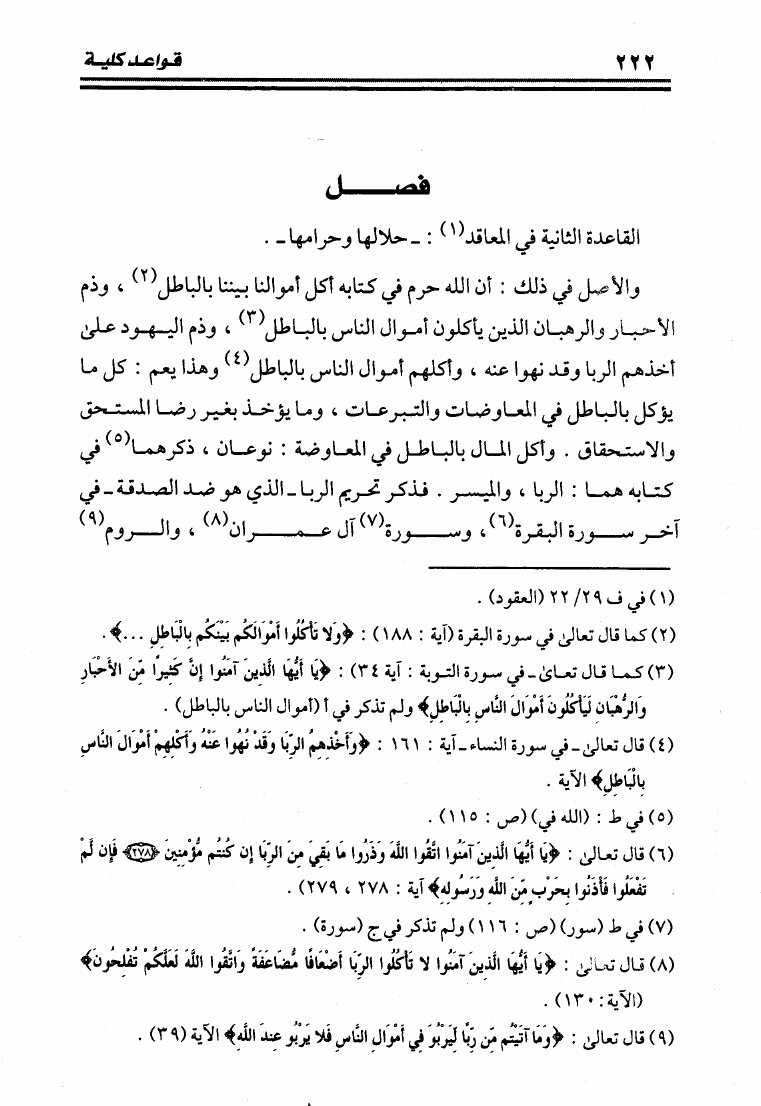 ٢٢٢ قواعد كلية
فصل
القاعدة الثانية في المعاقد(١) : ـ حلالها وحرامها ـ .
والأصل في ذلك : أن الله حرم في كتابه أكل أموالنا بيننا بالباطل(٢) ، وذم
الأحبار والرهبان الذين يأكلون أموال الناس بالباطل(٣) ، وذم اليهود علىٰ
أخذهم الربا وقد نهوا عنه ، وأكلهم أموال الناس بالباطل(٤) وهذا يعم : كل ما
يؤكل بالباطل في المعاوضات والتبرعات ، وما يؤخذ بغير رضا المستحق
والاستحقاق . وأكل المال بالباطل في المعاوضة : نوعان ، ذكرهما(٥) في
كتابه هما : الربا ، والميسر . فذكر تحريم الربا ـ الذي هو ضد الصدقة ـ في
آخر سورة البقرة(٦)، وسورة(٧) آل عمران(٨) ، والروم(٩)
(١) في ف ٢٢/٢٩ (العقود) .
(٢) كما قال تعالىٰ في سورة البقرة (آية : ١٨٨) : ﴿وَلا تَأْكُلُوا أَمْوَالَكُم بَيْنَكُم بِالْبَاطِلِ ...﴾ .
(٣) كما قال تعالىٰ ـ في سورة التوبة : آية ٣٤) : ﴿يَا أَيُّهَا الَّذِينَ آمَنُوا إِنَّ كَثِيرًا مِّنَ الأَحْبَارِ
وَالرُّهْبَانِ لَيَأْكُلُونَ أَمْوَالَ النَّاسِ بِالْبَاطِلِ﴾ ولم تذكر في أ (أموال الناس بالباطل) .
(٤) قال تعالىٰ ـ في سورة النساء ـ آية : ١٦١ : ﴿وَأَخْذِهِمُ الرِّبَا وَقَدْ نُهُوا عَنْهُ وَأَكْلِهِمْ أَمْوَالَ النَّاسِ
بِالْبَاطِلِ﴾ الآية .
(٥) في ط : (الله في) (ص : ١١٥) .
(٦) قال تعالىٰ : ﴿يَا أَيُّهَا الَّذِينَ آمَنُوا اتَّقُوا اللَّهَ وَذَرُوا مَا بَقِيَ مِنَ الرِّبَا إِن كُنتُم مُّؤْمِنِينَ ﴿٢٧٨﴾ فَإِن لَّمْ
تَفْعَلُوا فَأْذَنُوا بِحَرْبٍ مِّنَ اللَّهِ وَرَسُولِهِ﴾ آية : ٢٧٨ ، ٢٧٩) .
(٧) في ط (سور) (ص : ١١٦) ولم تذكر في ج (سورة) .
(٨) قال تعالىٰ : ﴿يَا أَيُّهَا الَّذِينَ آمَنُوا لا تَأْكُلُوا الرِّبَا أَضْعَافًا مُّضَاعَفَةً وَاتَّقُوا اللَّهَ لَعَلَّكُمْ تُفْلِحُونَ﴾
(الآية : ١٣٠) .
(٩) قال تعالىٰ : ﴿وَمَا آتَيْتُم مِّن رِّبًا لِّيَرْبُوَ فِي أَمْوَالِ النَّاسِ فَلا يَرْبُو عِندَ اللَّهِ﴾ الآية (٣٩) .